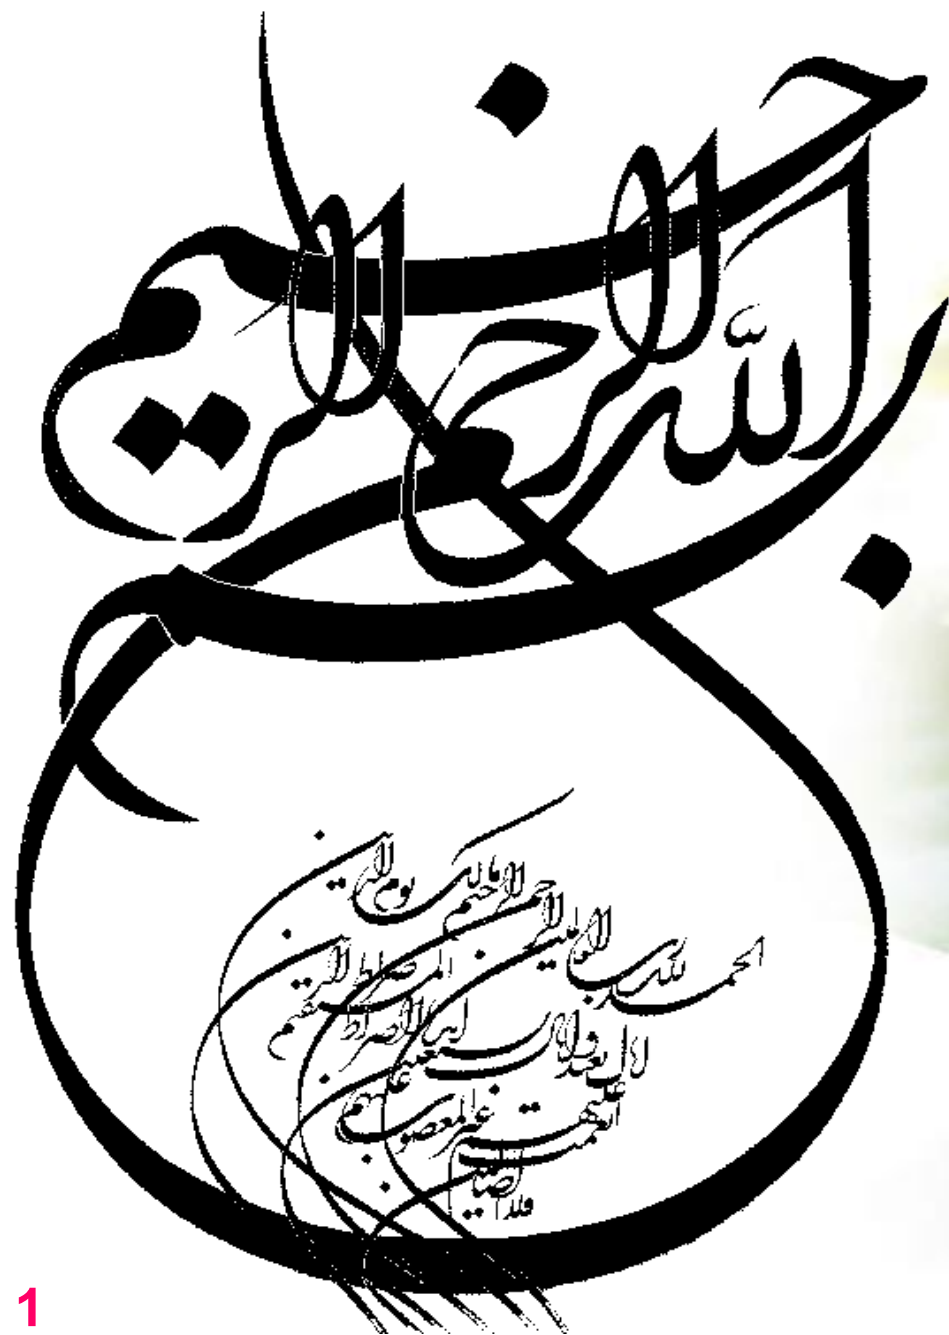 بسم الله الرحمن الرحيم
الحمد لله رب العالمين
الرحمن الرحيم مالك يوم الدين
اياك نعبد و اياك نستعين
اهدنا الصراط المستقيم
صراط الذين
انعمت عليهم غير المغضوب عليهم
ولا الضالين
1